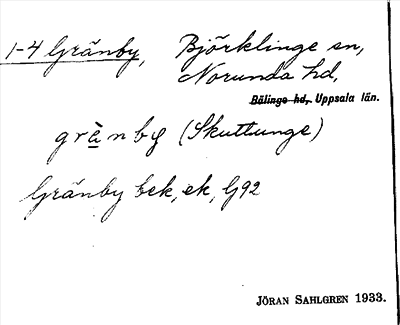 1-4 Gränby, Björklinge sn,
Norunda hd,
Bälinge hd, Uppsala län.
grä̀nby (Skuttunge)
Gränby bek, ek, G92
JÖRAN SAHLGREN 1933.